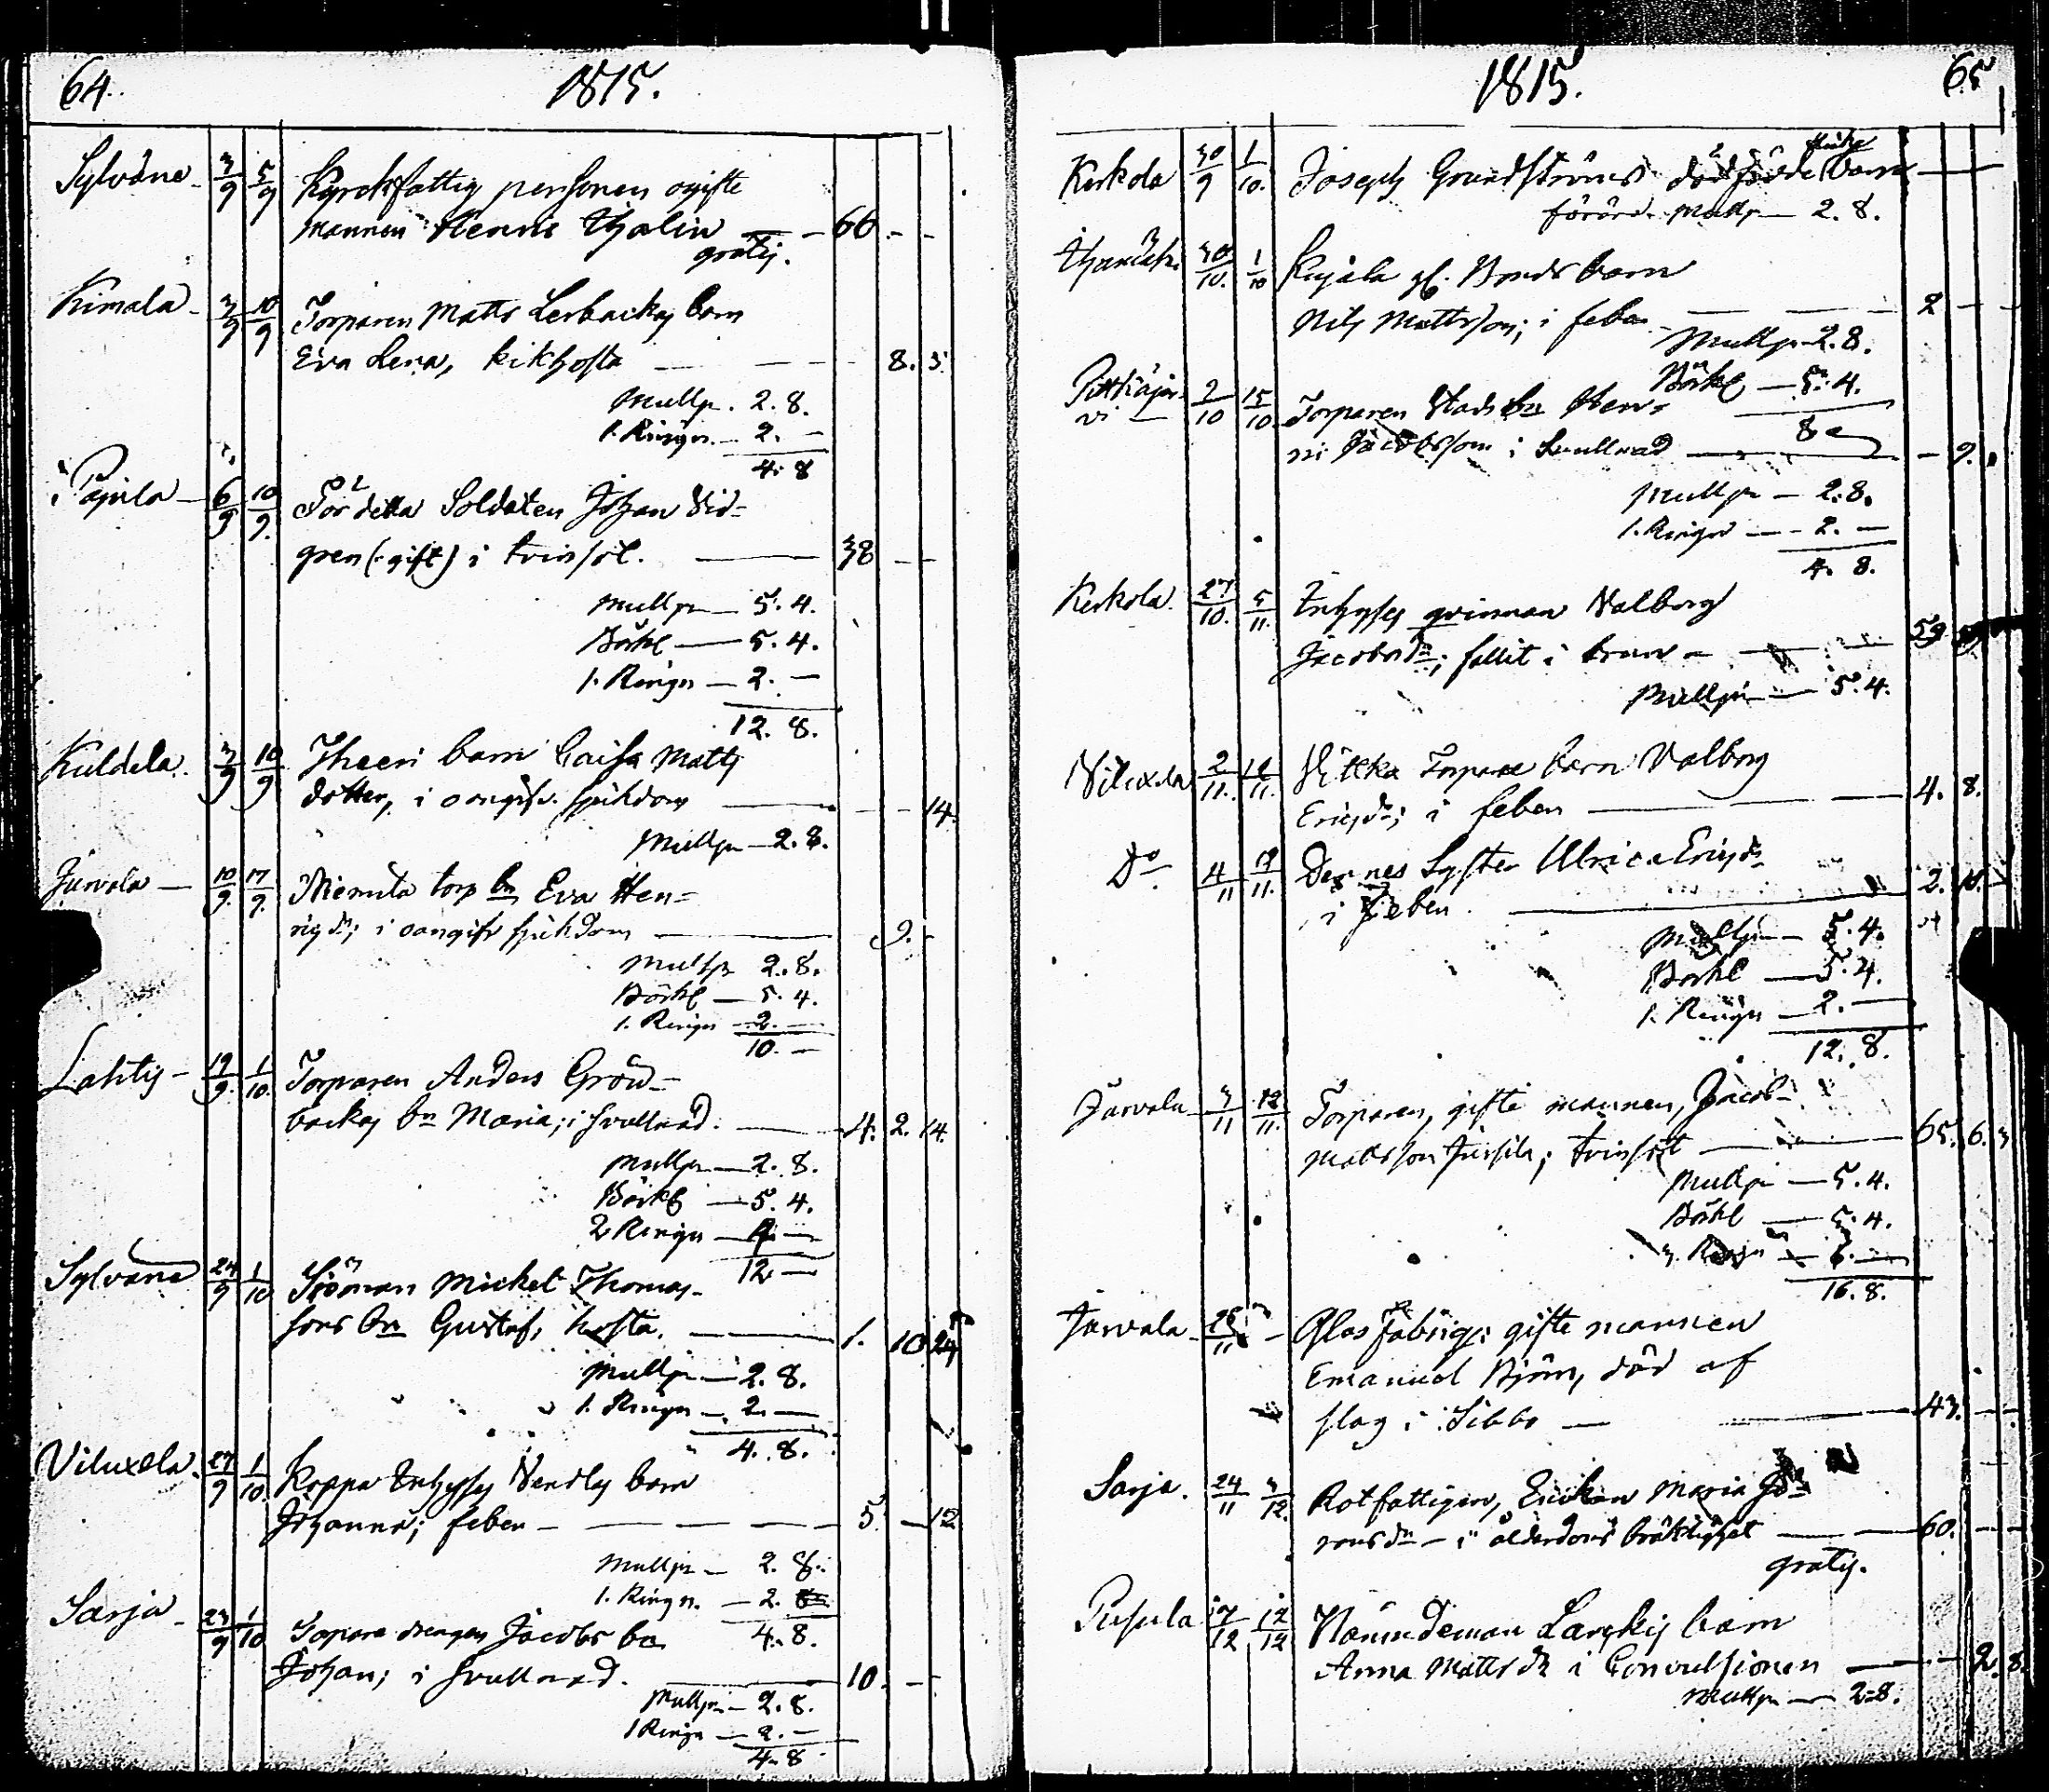 64.
1815.
Sylväne - 3/9 5/9 Kyrckfattig personen ogifte
mannen Henric Thalin — - 66 - -
gratis.
Kimala - 3/9 10/9 Torparen Matts Lerbackas barn
Eva Lena, kikhosta — - - 8. 3.
Mullp. 2. 8.
1. Ringn. — 2. —
4. 8
6/9 10/9 För detta Soldaten Johan
gren (: gift) i tvinsot. — 38 - -
Mullpn — 5. 4.
Bårkl — 5. 4.
1. Ringn — 2. —
12. 8.
Kuldela. 3/9 10/9 barn Caisa Matts
dotter, i oangifv. sjukdom — - - 14.
Mullpn — 2. 8.
Järvola — 10/9. 17/9. Niemita torp bn Eva Hen=
rics dr; i oangifv sjukdom — 9. -
Mullpn 2. 8.
Bårkl — 5. 4.
1. Ringn — 2. —
10. —
Lahtis - 19/9. 1/10. Torparen Anders Grön-
backas bn Maria; i svullnad. — 4. 2. 14.
Mullpn — 2. 8.
Bårkl — 5. 4.
2 Ringn — 4. —
12 —
Sylväne 24/9 1/10 Sjöman Mickel Thomas-
sons bn Gustaf, hosta. — 1. 10 24
Mullpn — 2. 8.
1. Ringn — 2. —
4. 8.
Viluxela. 27/9 1/10. Koppa Inhyses Vendlas barn
Johanna; feber — — 5. — 12
Mullpn — 2. 8.
1. Ringn. — 2.
4. 8.
Sarja - 23/9 1/10 Torpare drengen Jacobs bn
Johan; i svullnad. — 10. - -
Mullpn — 2. 8.
1 Ringn — 2. —
4. 8
1815.
65
Kerkola 30/9 1/10. Joseph Grundströms dödfödde barn — —
Mullpn — 2. 8.
30/10. 1/10 Kujala gl. Bonds barn
Nils Mattsson; i feber — 2 — —
Mullpn 2. 8.
Bårkl — 5. 4.
8 —
Pitkäjär-
vi — 2/10 15/10. Torparen bn Hen-
ric Jacobsson i Svullnad — - 9.
Mullpn — 2. 8.
1. Ringn — 2. —
4. 8.
Kerkola. 27/10. 5/11. Inhyses qvinnan Valborg
Jacobs dr; fallit i brunn — 59
Mullpn — 5. 4.
Viluxela 2/11. 12/11. Torpare barn Valborg
Erics dr; i feber — 4. 8.
Do. 4/11 12/11. Dennes Syster Ulrica Erics dr
i feber. — 2.
Mullpn — 5. 4.
Bårkl — 5. 4.
1. Ringn — 2. —
12. 8.
Järvola 3/11 12/11. Torparen, gifte mannen, Jacob
Mattsson; tvinsot — 65. 6. 3
Mullpn — 5. 4.
Bårkl — 5. 4.
3. Ringn — 6. —
16. 8.
Järvola 25/11 - Glas Fabriqs gifte mannen
Emanuel Björn, död af
slag i Sibbo — — 43. - -
Sarja. 24/11 3/12. Rotfattigen, Enkan Maria
- i ålderdoms bräcklighet — 60. - -
gratis.
Pusula 17/12 Nämndeman barn
Anna Matts dr i Convulsionen — - 2. 8.
Mullpn — 2. 8.